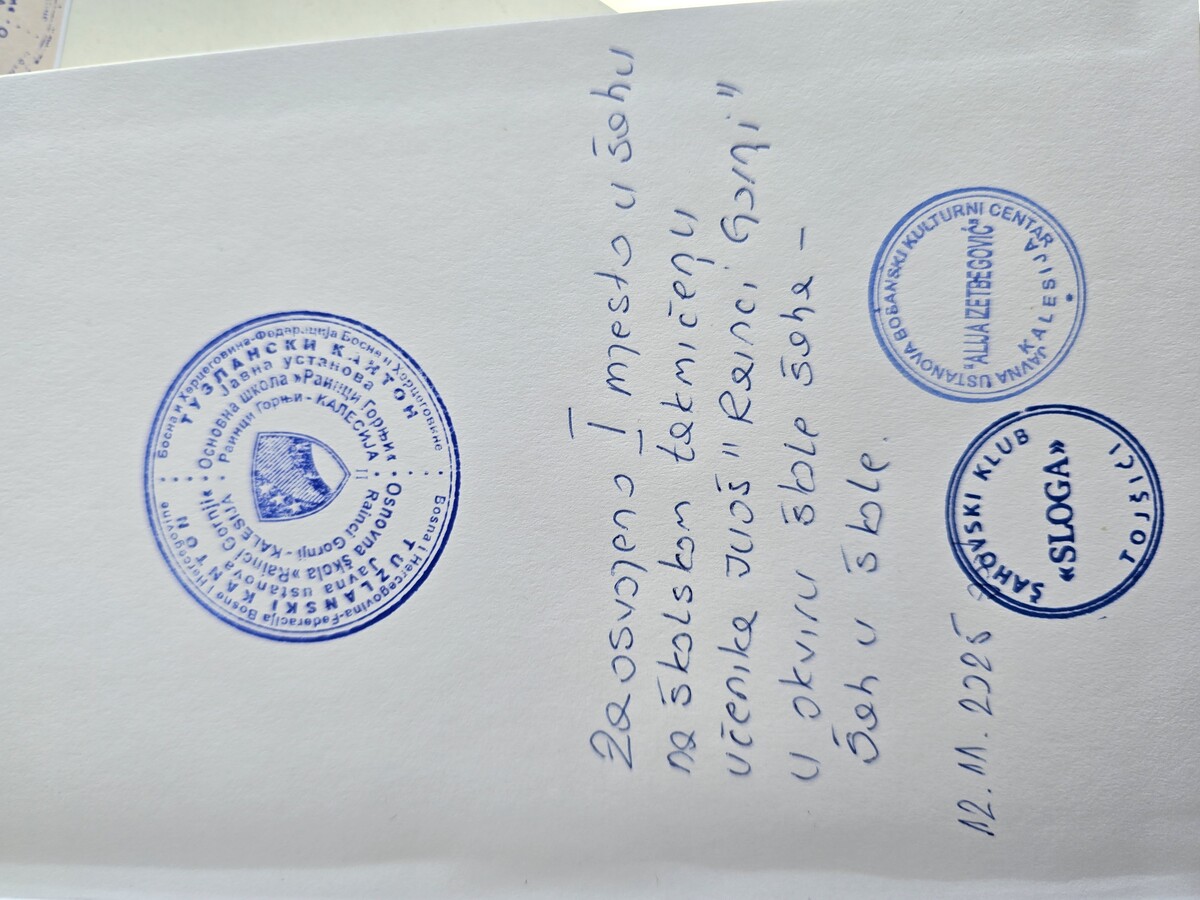 Bosna i Hercegovina-Federacija Bosne i Hercegovine
Босна и Херцеговина-Федерација Босне и Херцеговине
TUZLANSKI KANTON
ТУЗЛАНСКИ КАНТОН
Javna ustanova
Јавна установа
Osnovna škola »Rainci Gornji«
Основна школа »Раинци Горњи«
Rainci Gornji - KALESIJA
Раинци Горњи - КАЛЕСИЈА
II
Za osvojeno I mjesto u šahu
na školskom takmičenju
učenika JUOŠ "Rainci Gornji"
u okviru škole šaha -
Šah u škole
12.11.2025
ŠAHOVSKI KLUB
«SLOGA»
TOJŠIĆI
JAVNA USTANOVA BOSANSKI KULTURNI CENTAR
"ALIJA IZETBEGOVIĆ"
KALESIJA